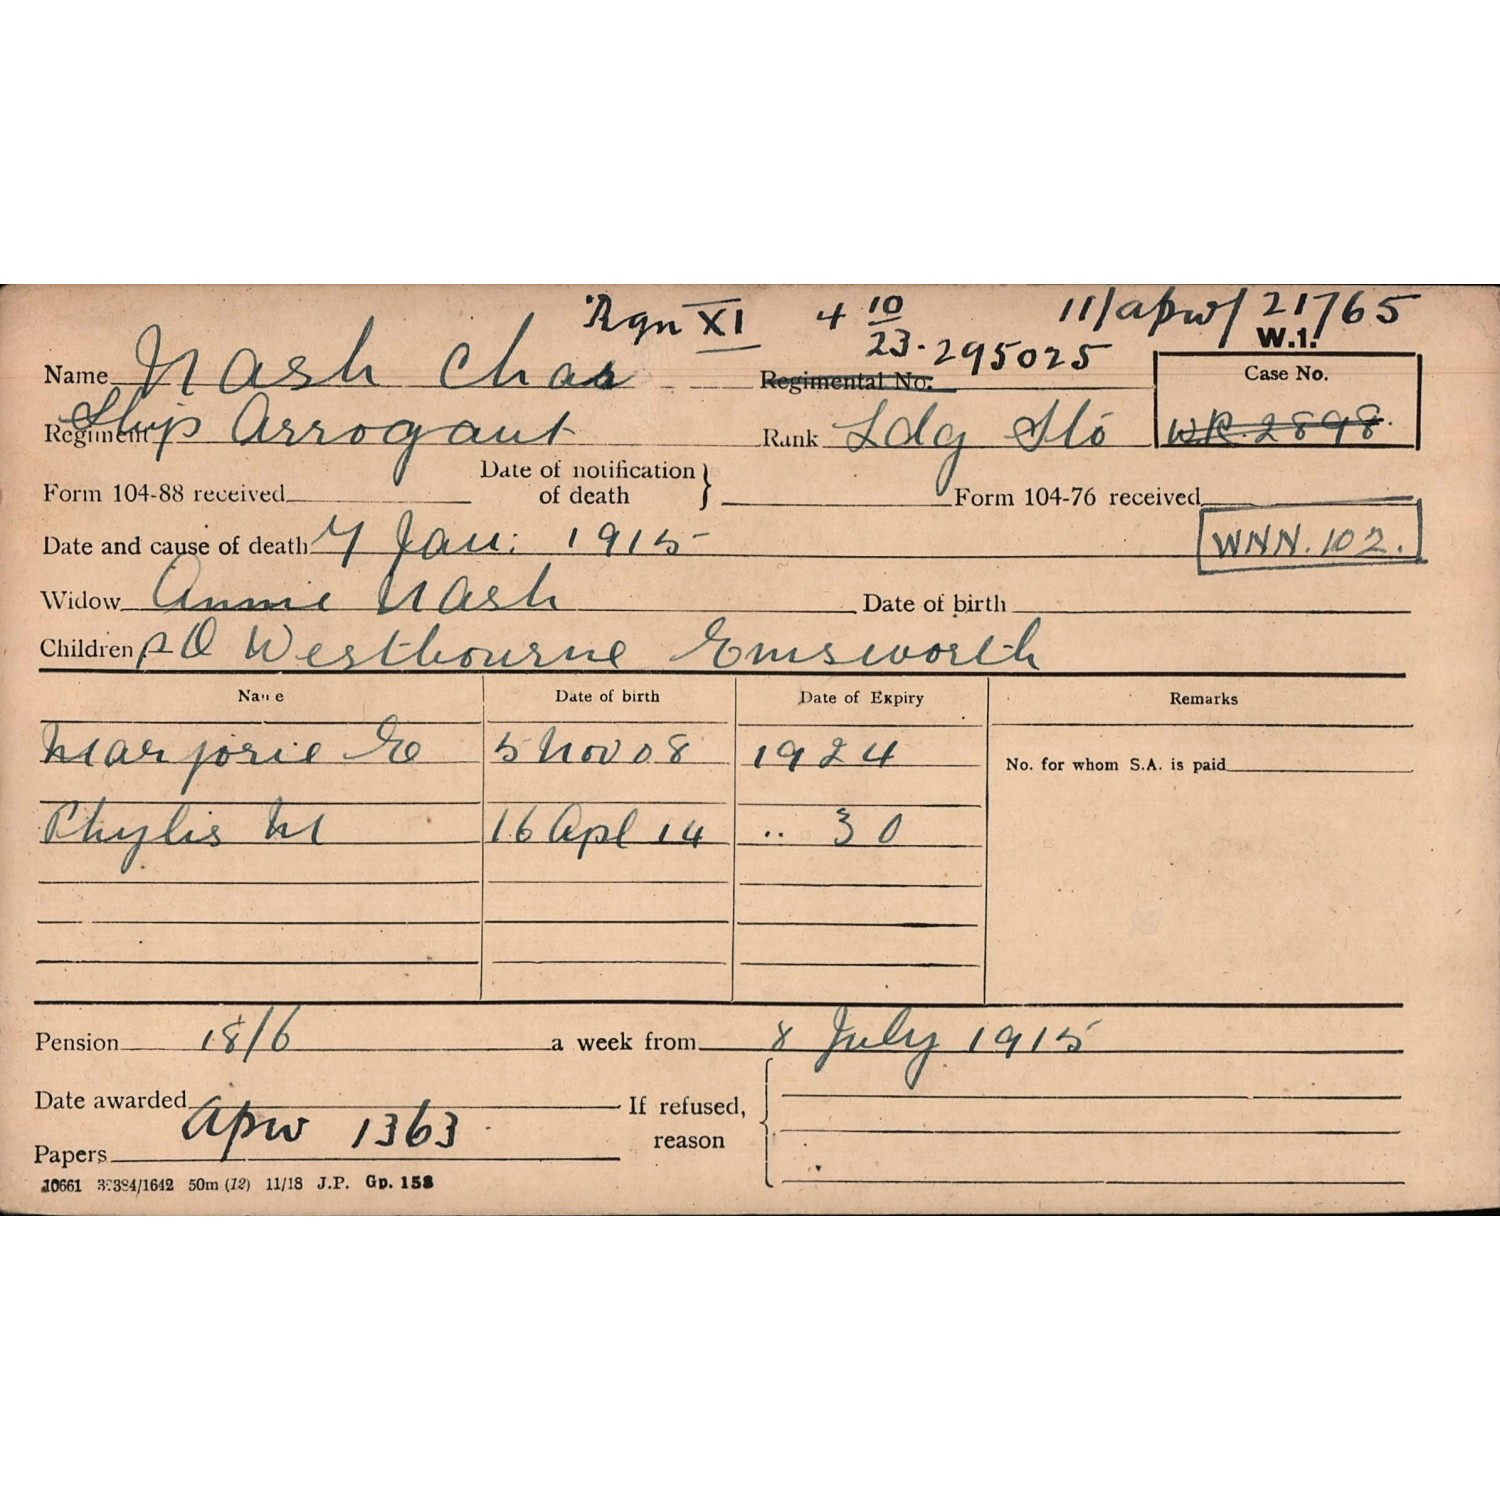 Rgn XI 4 10/23. 11/apw/21765
W.1.
Name Nash Chas Regimental No. 295025 Case No.
Regiment Ship Arrogant Rank Ldg Sto WR. 2898
Form 104-88 received Date of notification of death } Form 104-76 received
Date and cause of death 7 Jan: 1915 WNN. 102.
Widow Annie Nash Date of birth
Children PO Westbourne Emsworth
Name Date of birth Date of Expiry Remarks
Marjorie E 5 Nov 08 1924 No. for whom S.A. is paid
Phylis M 16 Apl 14 .. 30
Pension 18/6 a week from 8 July 1915
Date awarded If refused, reason
Papers apw 1363
10661 50m (12) 11/18 J.P. Gp. 158